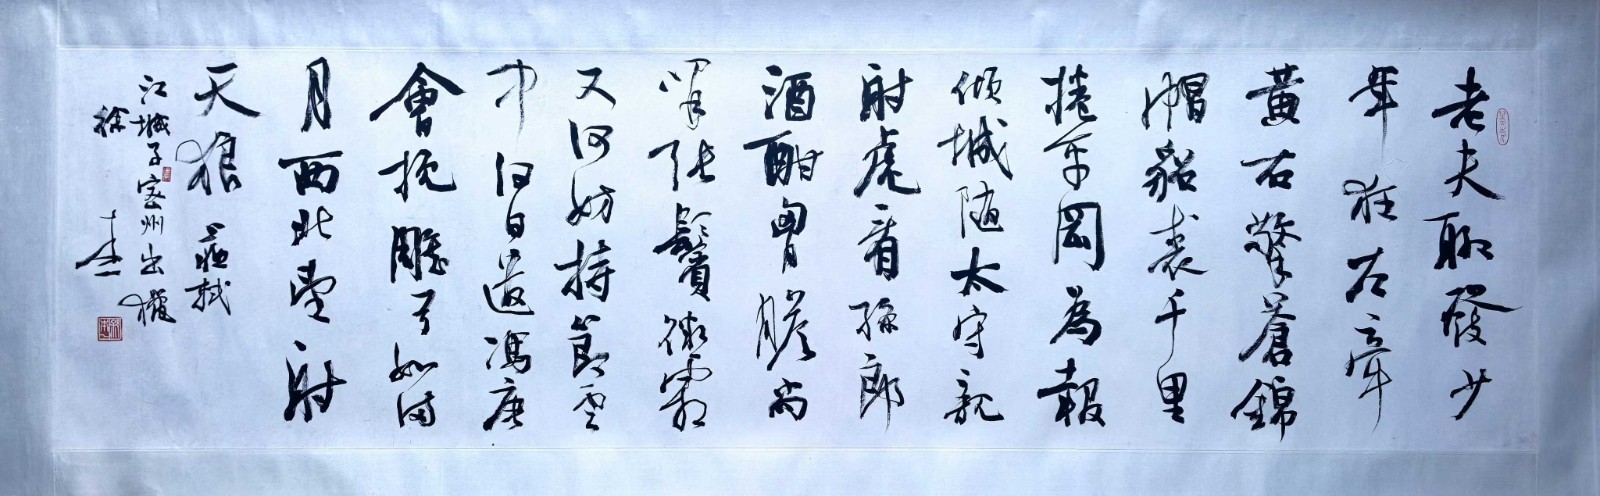 老夫聊發少
年狂左牽
黃右擎蒼錦
帽貂裘千里
捲平岡為報
傾城隨太守親
射虎看孫郎
酒酣胷膽尚
開張鬢微霜
又何妨持節雲
中何日遣馮唐
會挽雕弓如滿
月西北望射
天狼 蘇軾
江城子密州出獵
徐